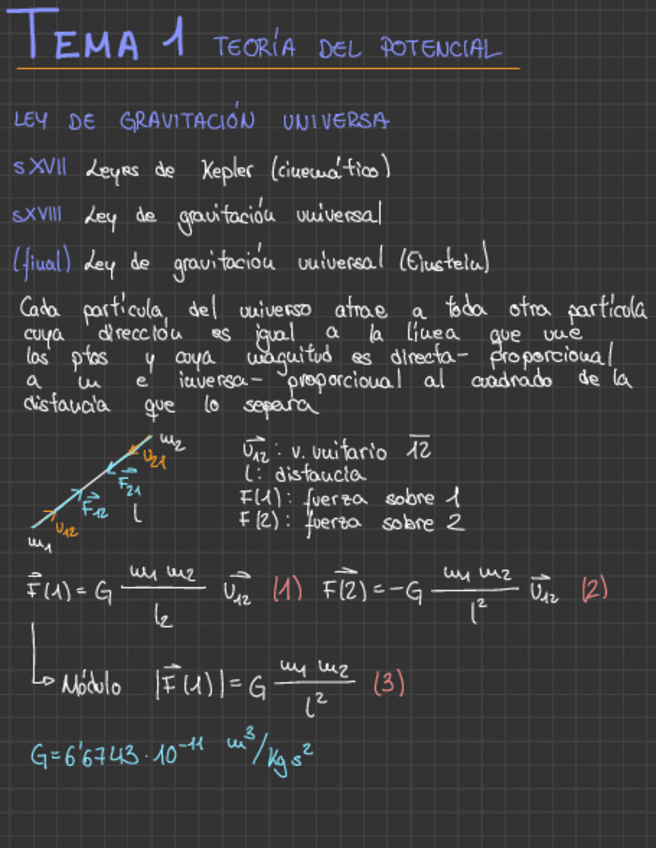 TEMA 1 TEORÍA DEL POTENCIAL
LEY DE GRAVITACIÓN UNIVERSA
sXVII Leyes de Kepler (cinemático)
sXVIII Ley de gravitación universal
(final) Ley de gravitación universal (Einstein)
Cada partícula del universo atrae a toda otra partícula
cuya dirección es igual a la línea que une
los ptos y cuya magnitud es directa- proporcional
a m e inversa- proporcional al cuadrado de la
distancia que lo separa
m₂
U₂₁
F⃗₂₁
F⃗₁₂
l
U₁₂
m₁
U⃗₁₂: v. unitario 1̅2̅
l: distancia
F(1): fuerza sobre 1
F(2): fuerza sobre 2
F⃗(1) = G m₁ m₂ / l₂ U⃗₁₂ (1) F⃗(2) = -G m₁ m₂ / l² U⃗₁₂ (2)
Módulo |F⃗(1)| = G m₁ m₂ / l² (3)
G=6'6743·10⁻¹¹ m³/kg s²